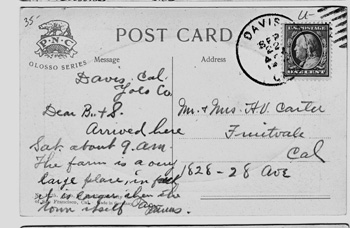 35-
P N C
OLOSSO SERIES
POST CARD
DAVIS
U.S. POSTAGE
ONE CENT
Message
Address
Davis, Cal.
Yolo Co.
Dear B. & S.
Arrived here
Sat. about 9. A.M.
The farm is a very
large place, in
it is larger than the
town itself
Mr. & Mrs. H.V. Carter
Fruitvale
Cal
1828-28 Ave